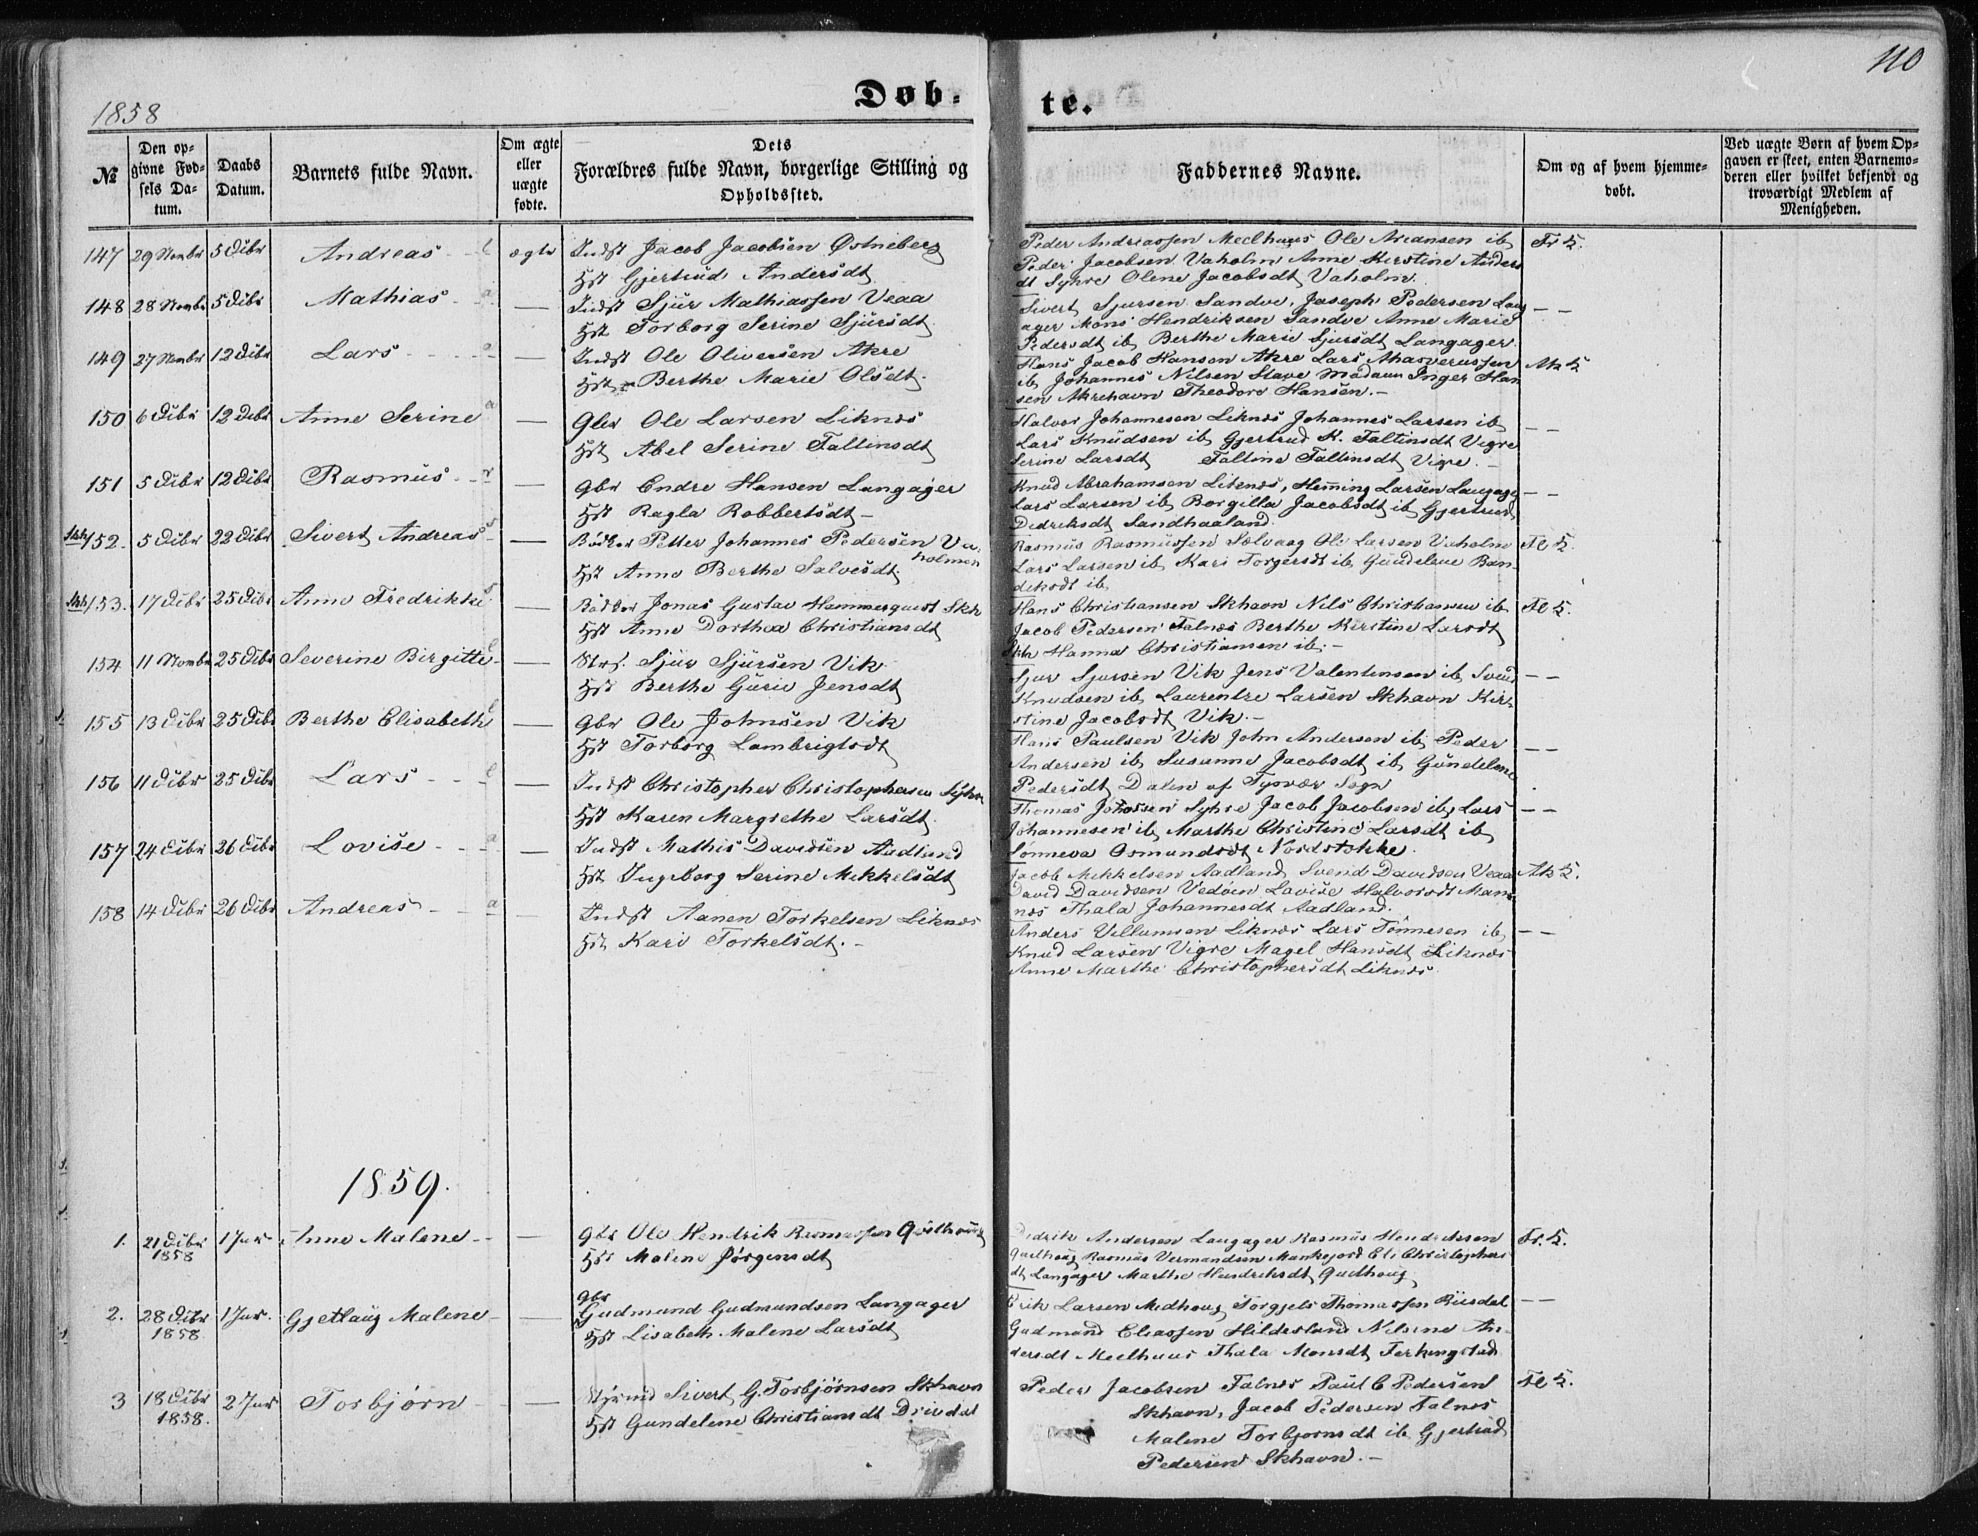 110
1858
Døb-
te.
№
Den op-
givne Fød-
sels Da-
tum.
Daabs
Datum.
Barnets fulde Navn.
Om ægte
eller
uægte
fødte.
Dets
Forældres fulde Navn, borgerlige Stilling og
Opholdssted.
Faddernes Navne.
Om og af hvem hjemme-
døbt.
Ved uægte Børn af hvem Op-
gaven er skeet, enten Barnemo-
deren eller hvilket bekjendt og
troværdigt Medlem af
Menigheden.
147 29 Novbr 5 Dcbr Andreas ægte Indst Jacob Jacobsen Østneberg
Hst Gjertrud Andersdt
Peder Andreassen Meelhuus Ole Areansen ib
Peder Jacobsen Vaholm Anne Kirstine Anders
dt Syhre Olene Jacobsdt Vaholm.
148 28 Novbr 5 Dcbr Mathias — Indst Sjur Mathiassen Veaa
Hst Torborg Serine Sjursdt
Sivert Sjursen Sandve, Joseph Pedersen Lang
ager Mons Hendriksen Sandve Anne Marie
Pedersdt ib Berthe Marie Sjursdt Langager.
149 27 Novbr 12 Dcbr Lars — Indst Ole Oliversen Akre
Hst Berthe Marie Olsdt.
Hans Jacob Hansen Akre Lars Ahasverussen
ib, Johannes Nilsen Stave Madam Inger Han
sen Akrehavn Theodore Hansen.
150 6 Dcbr 12 Dcbr Anne Serine — Gbr Ole Larsen Liknes
Hst Abel Serine Faltinsdt
Halvor Johannesen Liknes Johannes Larsen ib
Lars Knudsen ib, Gjertrud K. Faltinsdt Vigre
Serine Larsdt Faltine Faltinsdt Vigre.
151 5 Dcbr 12 Dcbr Rasmus — Gbr Endre Hansen Langager
Hst Ragla Robbertsdt
Knud Abrahamsen Liknes, Heming Larsen Langager
Lars Larsen ib, Borgilla Jacobsdt ib Gjertrud
Didriksdt Sandhaaland.
152. 5 Dcbr 22 Dcbr Sivert Andreas — Bødker Petter Johannes Pedersen Va-
holmen
Hst Anne Berthe Salvesdt.
Rasmus Rasmussen Sælvaag Ole Larsen Vaholm
Lars Larsen ib, Kari Torgersdt ib, Gundelene Ben
diksdt ib,
153. 17 Dcbr 25 Dcbr Anne Fredrikke — Bødker Jonas Gustav Hammerquist Skh
Hst Anne Dorthea Christiansdt
Hans Christiansen Skhavn Nils Christiansen ib
Jacob Pedersen Falnes Berthe Kirstine Larsdt
Skh Hanna Christiansen ib.
154 11 Novbr 25 Dcbr Severine Birgitte — Strs. Sjur Sjursen Vik
Hst Berthe Gurie Jensdt
Sjur Sjursen Vik Jens Valentinsen ib, Svend
Knudsen ib, Laurentze Larsen Skhavn Kir
stine Jacobsdt Vik.
155 13 Dcbr 25 Dcbr Berthe Elisabeth — Gbr Ole Johnsen Vik
Hst Torborg Lambrigtsdt
Hans Paulsen Vik John Andersen ib, Peder
Andersen ib, Susanne Jacobsdt ib, Gundelene
Pedersdt Dalen af Tysvær Sogn
156 11 Dcbr 25 Dcbr Lars — Indst Christopher Christophersen Syhre
Hst Karen Margrethe Larsdt.
Thomas Johnsen Syhre Jacob Jacobsen ib, Lars
Johannesen ib, Marthe Christine Larsdt ib
Sønneva Osmundsdt Nordstokke.
157 24 Dcbr 26 Dcbr Lovise — Indst Mathis Davidsen Aadland
Hst Ingeborg Serine Mikkelsdt
Jacob Mikkelsen Aadland Svend Davidsen Veaa
David Davidsen Vedøen Lovise Halvorsdt Man
nes Thala Johannesdt Aadland.
158 14 Dcbr 26 Dcbr Andreas — Indst Aanen Torkelsen Liknes
Hst Kari Torkelsdt.
Anders Villumsen Liknes Lars Tønnesen ib,
Knud Larsen Vigre Magel Hansdt Liknes
Anne Marthe Christophersdt Liknes.
1859.
1. 21 Dcbr 1858 1 Jan Anne Malene — Gbr Ole Hendrik Rasmussen Qvilhoug
Hst Malene Jørgensdt
Didrik Andersen Langager Rasmus Hendriksen
Qvilhoug Rasmus Vermundsen Munkejord Eli Christophers
dt Langager Marthe Hendriksdt Qvilhoug
2. 28 Dcbr 1858 1 Jan. Gjetlaug Malene — Gbr
Gudmund Gudmundsen Langager
Hst Lisabeth Malene Larsdt
Erik Larsen Medhoug Torgjels Thomassen Riisdal
Gudmund Eliassen Hildesland Nilsine An-
dersdt Meelhuus Thala Monsdt Ferkingstad
3 18 Dcbr 1858. 2 Jan Torbjørn — Sivert G. Torbjørnsen Skhavn
Hst Gundelene Christiansdt Drivdal
Peder Jacobsen Falnes Paul C Pedersen
Skhavn, Jacob Pedersen Falnes
Malene Torbjørnsdt ib, Gjertrud
Pedersen Skhavn.